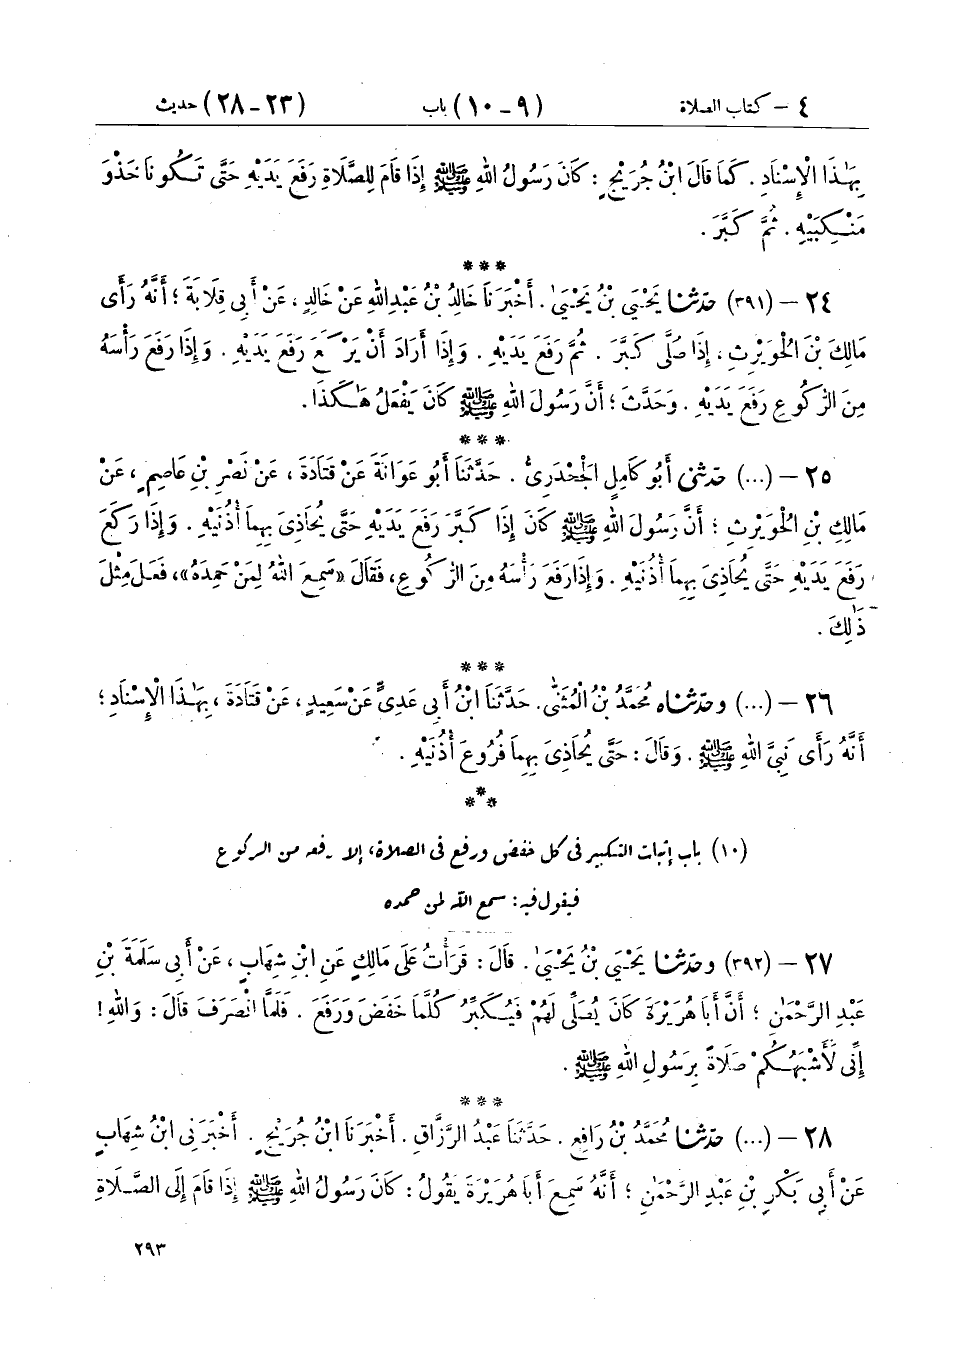 ٤ – كتاب الصلاة (٩ – ١٠) باب (٢٣ – ٢٨) حديث
بِهَٰذَا الْإِسْنَادِ. كَمَا قَالَ ابْنُ جُرَيْجٍ: كَانَ رَسُولُ اللهِ ﷺ إِذَا قَامَ لِلصَّلَاةِ رَفَعَ يَدَيْهِ حَتَّى تَكُونَا حَذْوَ
مَنْكِبَيْهِ. ثُمَّ كَبَّرَ.
***
٢٤ – (٣٩١) حَدَّثَنَا يَحْيَىٰ بْنُ يَحْيَىٰ. أَخْبَرَنَا خَالِدُ بْنُ عَبْدِ اللهِ عَنْ خَالِدٍ، عَنْ أَبِي قِلَابَةَ؛ أَنَّهُ رَأَى
مَالِكَ بْنَ الْحُوَيْرِثِ، إِذَا صَلَّى كَبَّرَ. ثُمَّ رَفَعَ يَدَيْهِ. وَإِذَا أَرَادَ أَنْ يَرْكَعَ رَفَعَ يَدَيْهِ. وَإِذَا رَفَعَ رَأْسَهُ
مِنَ الرُّكُوعِ رَفَعَ يَدَيْهِ. وَحَدَّثَ؛ أَنَّ رَسُولَ اللهِ ﷺ كَانَ يَفْعَلُ هَٰكَذَا.
***
٢٥ – (...) حَدَّثَنِي أَبُو كَامِلٍ الْجَحْدَرِيُّ. حَدَّثَنَا أَبُو عَوَانَةَ عَنْ قَتَادَةَ، عَنْ نَصْرِ بْنِ عَاصِمٍ، عَنْ
مَالِكِ بْنِ الْحُوَيْرِثِ؛ أَنَّ رَسُولَ اللهِ ﷺ كَانَ إِذَا كَبَّرَ رَفَعَ يَدَيْهِ حَتَّى يُحَاذِيَ بِهِمَا أُذُنَيْهِ. وَإِذَا رَكَعَ
رَفَعَ يَدَيْهِ حَتَّى يُحَاذِيَ بِهِمَا أُذُنَيْهِ. وَإِذَا رَفَعَ رَأْسَهُ مِنَ الرُّكُوعِ، فَقَالَ «سَمِعَ اللهُ لِمَنْ حَمِدَهُ»، فَعَلَ مِثْلَ
ذَٰلِكَ.
***
٢٦ – (...) وحَدَّثَنَاه مُحَمَّدُ بْنُ الْمُثَنَّى. حَدَّثَنَا ابْنُ أَبِي عَدِيٍّ عَنْ سَعِيدٍ، عَنْ قَتَادَةَ، بِهَٰذَا الْإِسْنَادِ؛
أَنَّهُ رَأَى نَبِيَّ اللهِ ﷺ. وَقَالَ: حَتَّى يُحَاذِيَ بِهِمَا فُرُوعَ أُذُنَيْهِ.
***
(١٠) باب إثبات التكبير في كل خفض ورفع في الصلاة، إلا رفعه من الركوع
فيقول فيه: سمع الله لمن حمده
٢٧ – (٣٩٢) وحَدَّثَنَا يَحْيَىٰ بْنُ يَحْيَىٰ. قَالَ: قَرَأْتُ عَلَى مَالِكٍ عَنِ ابْنِ شِهَابٍ، عَنْ أَبِي سَلَمَةَ بْنِ
عَبْدِ الرَّحْمَٰنِ؛ أَنَّ أَبَا هُرَيْرَةَ كَانَ يُصَلِّي لَهُمْ فَيُكَبِّرُ كُلَّمَا خَفَضَ وَرَفَعَ. فَلَمَّا انْصَرَفَ قَالَ: وَاللهِ!
إِنِّي لَأَشْبَهُكُمْ صَلَاةً بِرَسُولِ اللهِ ﷺ.
***
٢٨ – (...) حَدَّثَنَا مُحَمَّدُ بْنُ رَافِعٍ. حَدَّثَنَا عَبْدُ الرَّزَّاقِ. أَخْبَرَنَا ابْنُ جُرَيْجٍ. أَخْبَرَنِي ابْنُ شِهَابٍ
عَنْ أَبِي بَكْرِ بْنِ عَبْدِ الرَّحْمَٰنِ؛ أَنَّهُ سَمِعَ أَبَا هُرَيْرَةَ يَقُولُ: كَانَ رَسُولُ اللهِ ﷺ إِذَا قَامَ إِلَى الصَّلَاةِ
٢٩٣